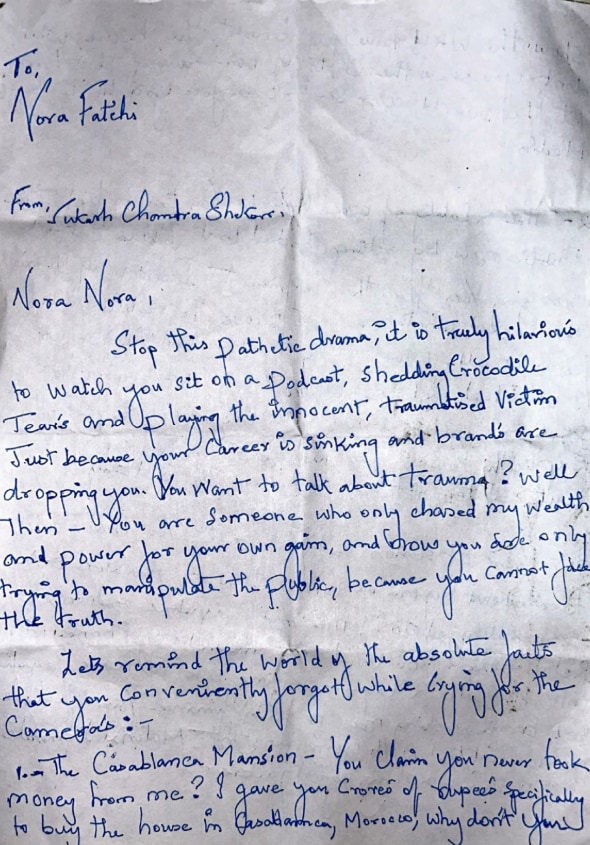 To,
Nora Fatehi
From, Sukash Chandra Shekar.
Nora Nora,
Stop this pathetic drama, it is truly hilarious
to watch you sit on a Podcast, shedding Crocodile
Tears and playing the innocent, traumatised Victim
Just because your Career is sinking and brands are
dropping you. You want to talk about trauma? well
Then – You are someone who only chased my wealth
and power for your own gain, and now you are only
trying to manipulate the public, because you cannot face
the truth.
Lets remind the world of the absolute facts
that you conveniently forgot while crying for the
Camera's :-
1. – The Casablanca Mansion – You claim you never took
money from me? I gave you Crores of rupees specifically
to buy the house in Casablanca, Morocco, why don't you